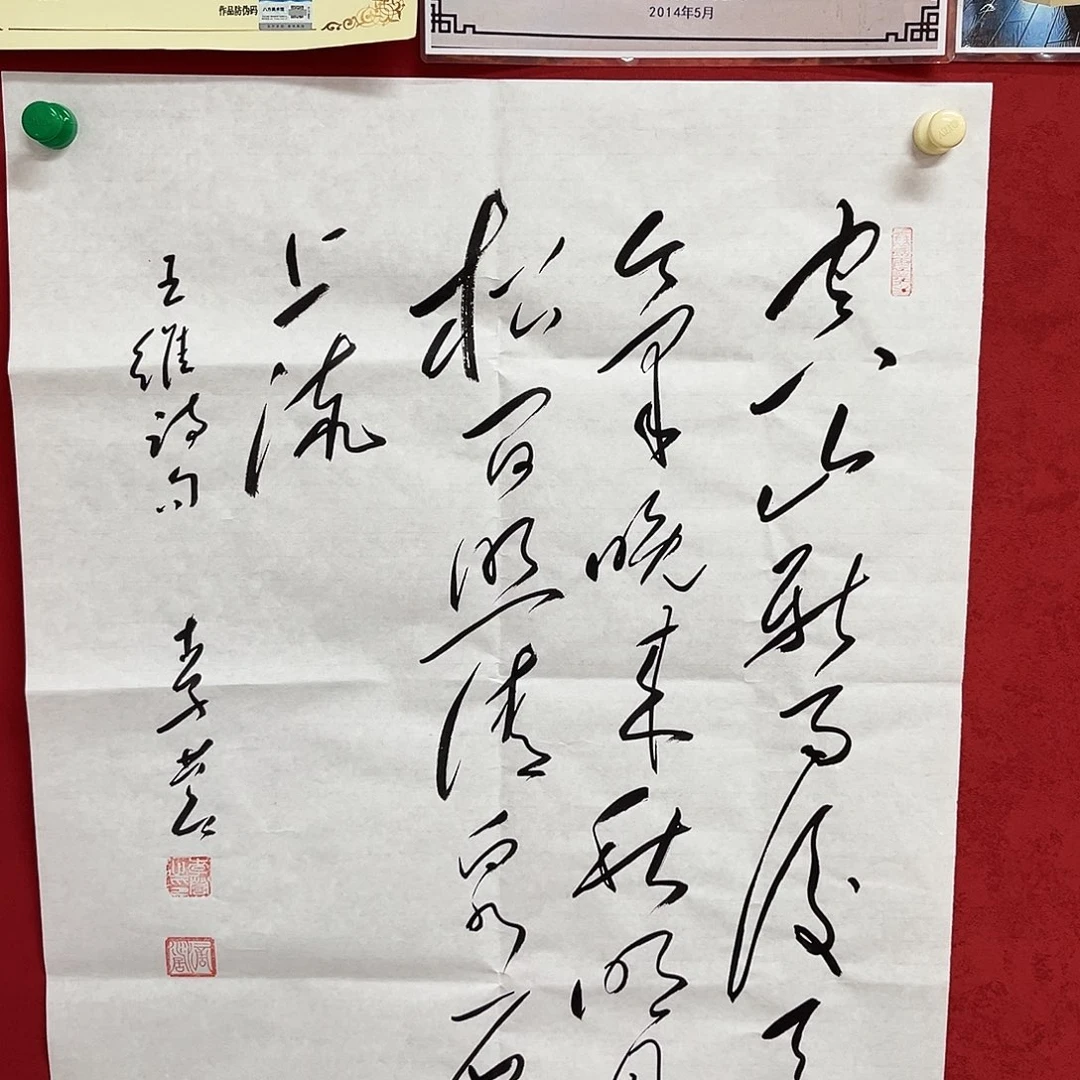 作品防伪码
2014年5月
空山新雨後天
氣晚来秋明月
松间照清泉石
上流
王维诗句
李